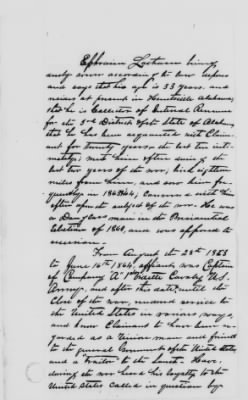 Ephraim Latham being
duly sworn according to law deposes
and says that his age is 33 years and
resides at present in Huntsville Alabama
that he is Collector of Internal Revenue
for the 3rd District of the State of Alabama
that he has been acquainted with Claim-
ant for twenty years the last ten inti-
mately; met him often during the
last two years of the war, his eighteen
miles from him, and saw him fre-
quently in 1863 & 4, conversed with him
often upon the subject of the war. He was
a Douglass man in the Presidential
Election of 1860, and was opposed to
secession.
From August the 28th 1863
to June 16th 1864, affiant was Captain
of Company "A" Cavalry U.S.
Army, and after this date until the
close of the war, rendered service to
the United States in various ways,
and knew Claimant to have been re-
garded as a Union man and friend
to the general Government of the United States
and a Traitor to the South. Have
during the war heard his loyalty to the
United States called in question by